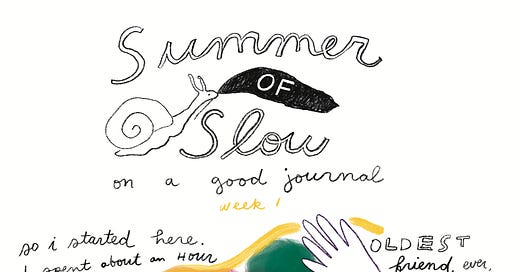 Summer
OF
Slow
on a good journal
week 1
so i started here.
I spent about an HOUR
OLDEST
friend, ever,